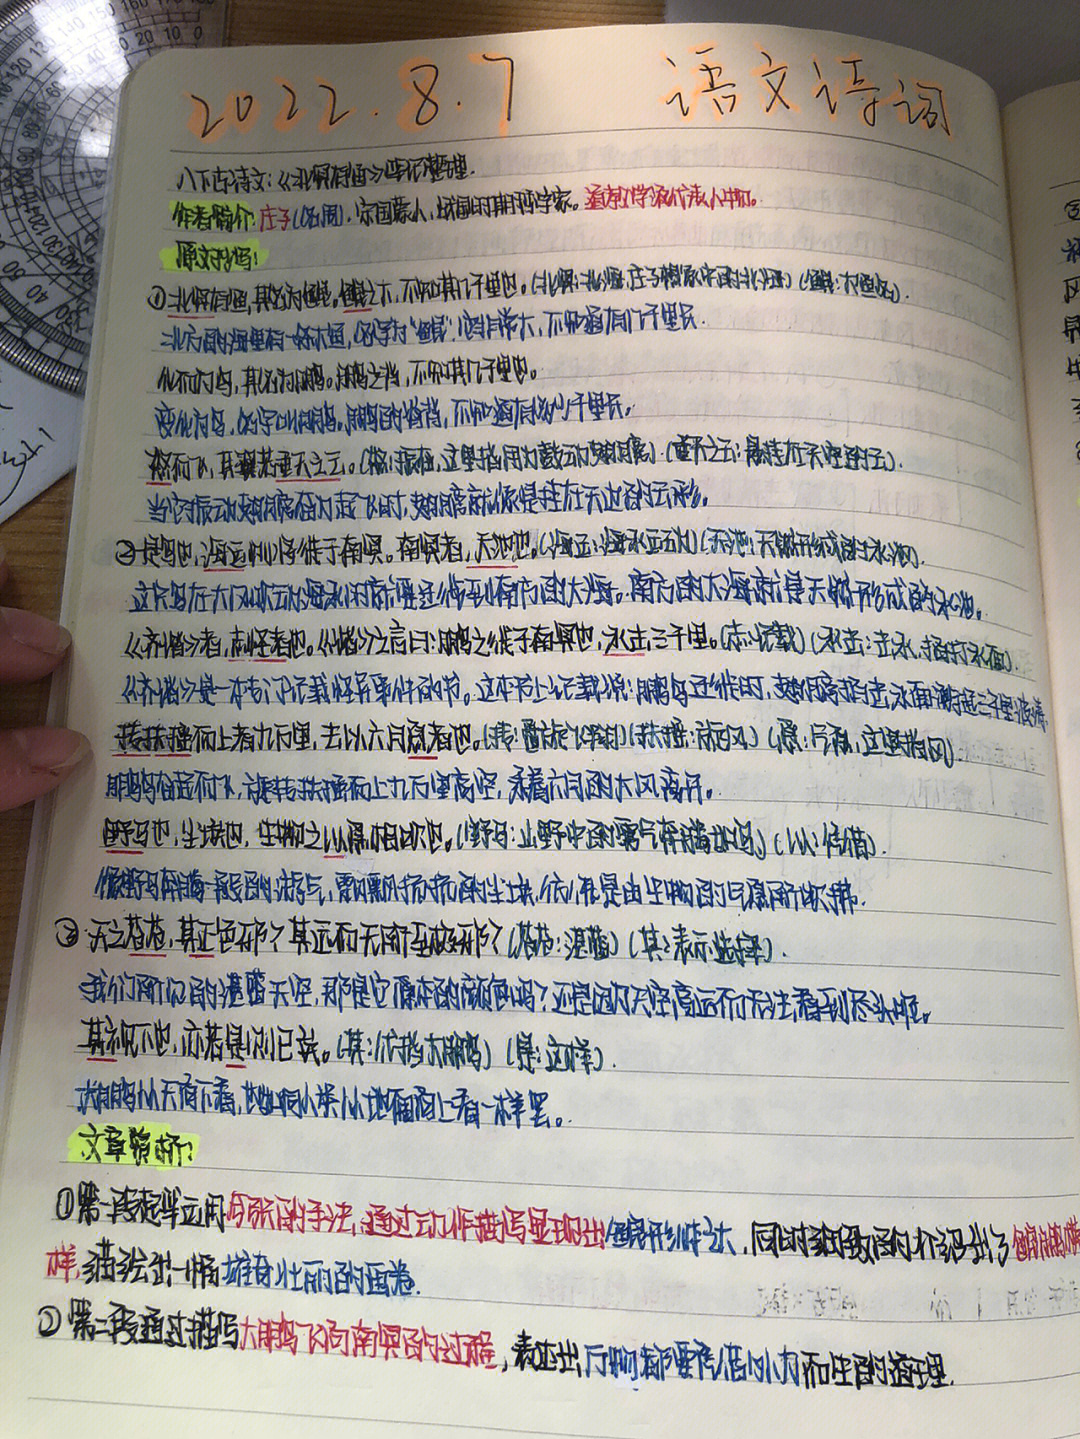 2022.8.7 语文诗词
八下古诗文:《北冥有鱼》笔记整理.
作者简介:庄子(名周).宋国蒙人,战国时期哲学家。道家学派代表人物。
原文抄写:
①北冥有鱼,其名为鲲。鲲之大,不知其几千里也。(北冥:北海,庄子想象中的北海)(鲲:大鱼名).
北方的海里有一条大鱼,名字为“鲲”.它非常大,不知道有几千里长.
化而为鸟,其名为鹏。鹏之背,不知其几千里也。
变化为鸟,名字叫做鹏。鹏的脊背,不知道有几千里长。
怒而飞,其翼若垂天之云。(怒:振奋,这里指用力鼓动翅膀).(垂天之云:悬挂在天空的云).
当它振动翅膀奋力起飞时,翅膀就像是挂在天边的云彩。
②是鸟也,海运则将徙于南冥。南冥者,天池也。(海运:海水运动)(天池:天然形成的水池).
这只鸟在大风吹动海水时就要迁徙到南方的大海。南方的大海就是天然形成的水池。
《齐谐》者,志怪者也。《谐》之言曰:鹏之徙于南冥也,水击三千里。(志:记载)(水击:击水,拍打水面).
《齐谐》是一本专门记载怪异事件的书。这本书上记载说:鹏鸟迁徙时,翅膀拍击水面激起三千里波涛
抟扶摇而上者九万里,去以六月息者也。(抟:盘旋飞翔)(扶摇:旋风)(息:气息,这里指风)
鹏鸟奋起而飞,旋转扶摇而上九万里高空,乘着六月的大风离开。
野马也,尘埃也,生物之以息相吹也。(野马:山野中的雾气奔腾如马)(以:凭借).
像野马奔腾一般的游气,飘飘扬扬的尘埃,都是由生物的气息所吹拂.
③天之苍苍,其正色邪?其远而无所至极邪?(苍苍:湛蓝)(其:表示选择).
我们所见的湛蓝天空,那是它原本的颜色吗?还是因为天空高远而无法看到尽头呢。
其视下也,亦若是则已矣。(其:代指大鹏)(是:这样).
大鹏从天而下看,也如同人类从地面向上看一样罢。
文章赏析:
①第一段起笔运用夸张的手法,通过动作描写显现出鲲鹏形体之大,同时细致的介绍出了鲲鹏的模
样,描绘出一幅雄奇壮丽的画卷.
②第二段通过描写大鹏飞向南冥的过程,表达出万物都要凭借外力而生的道理.